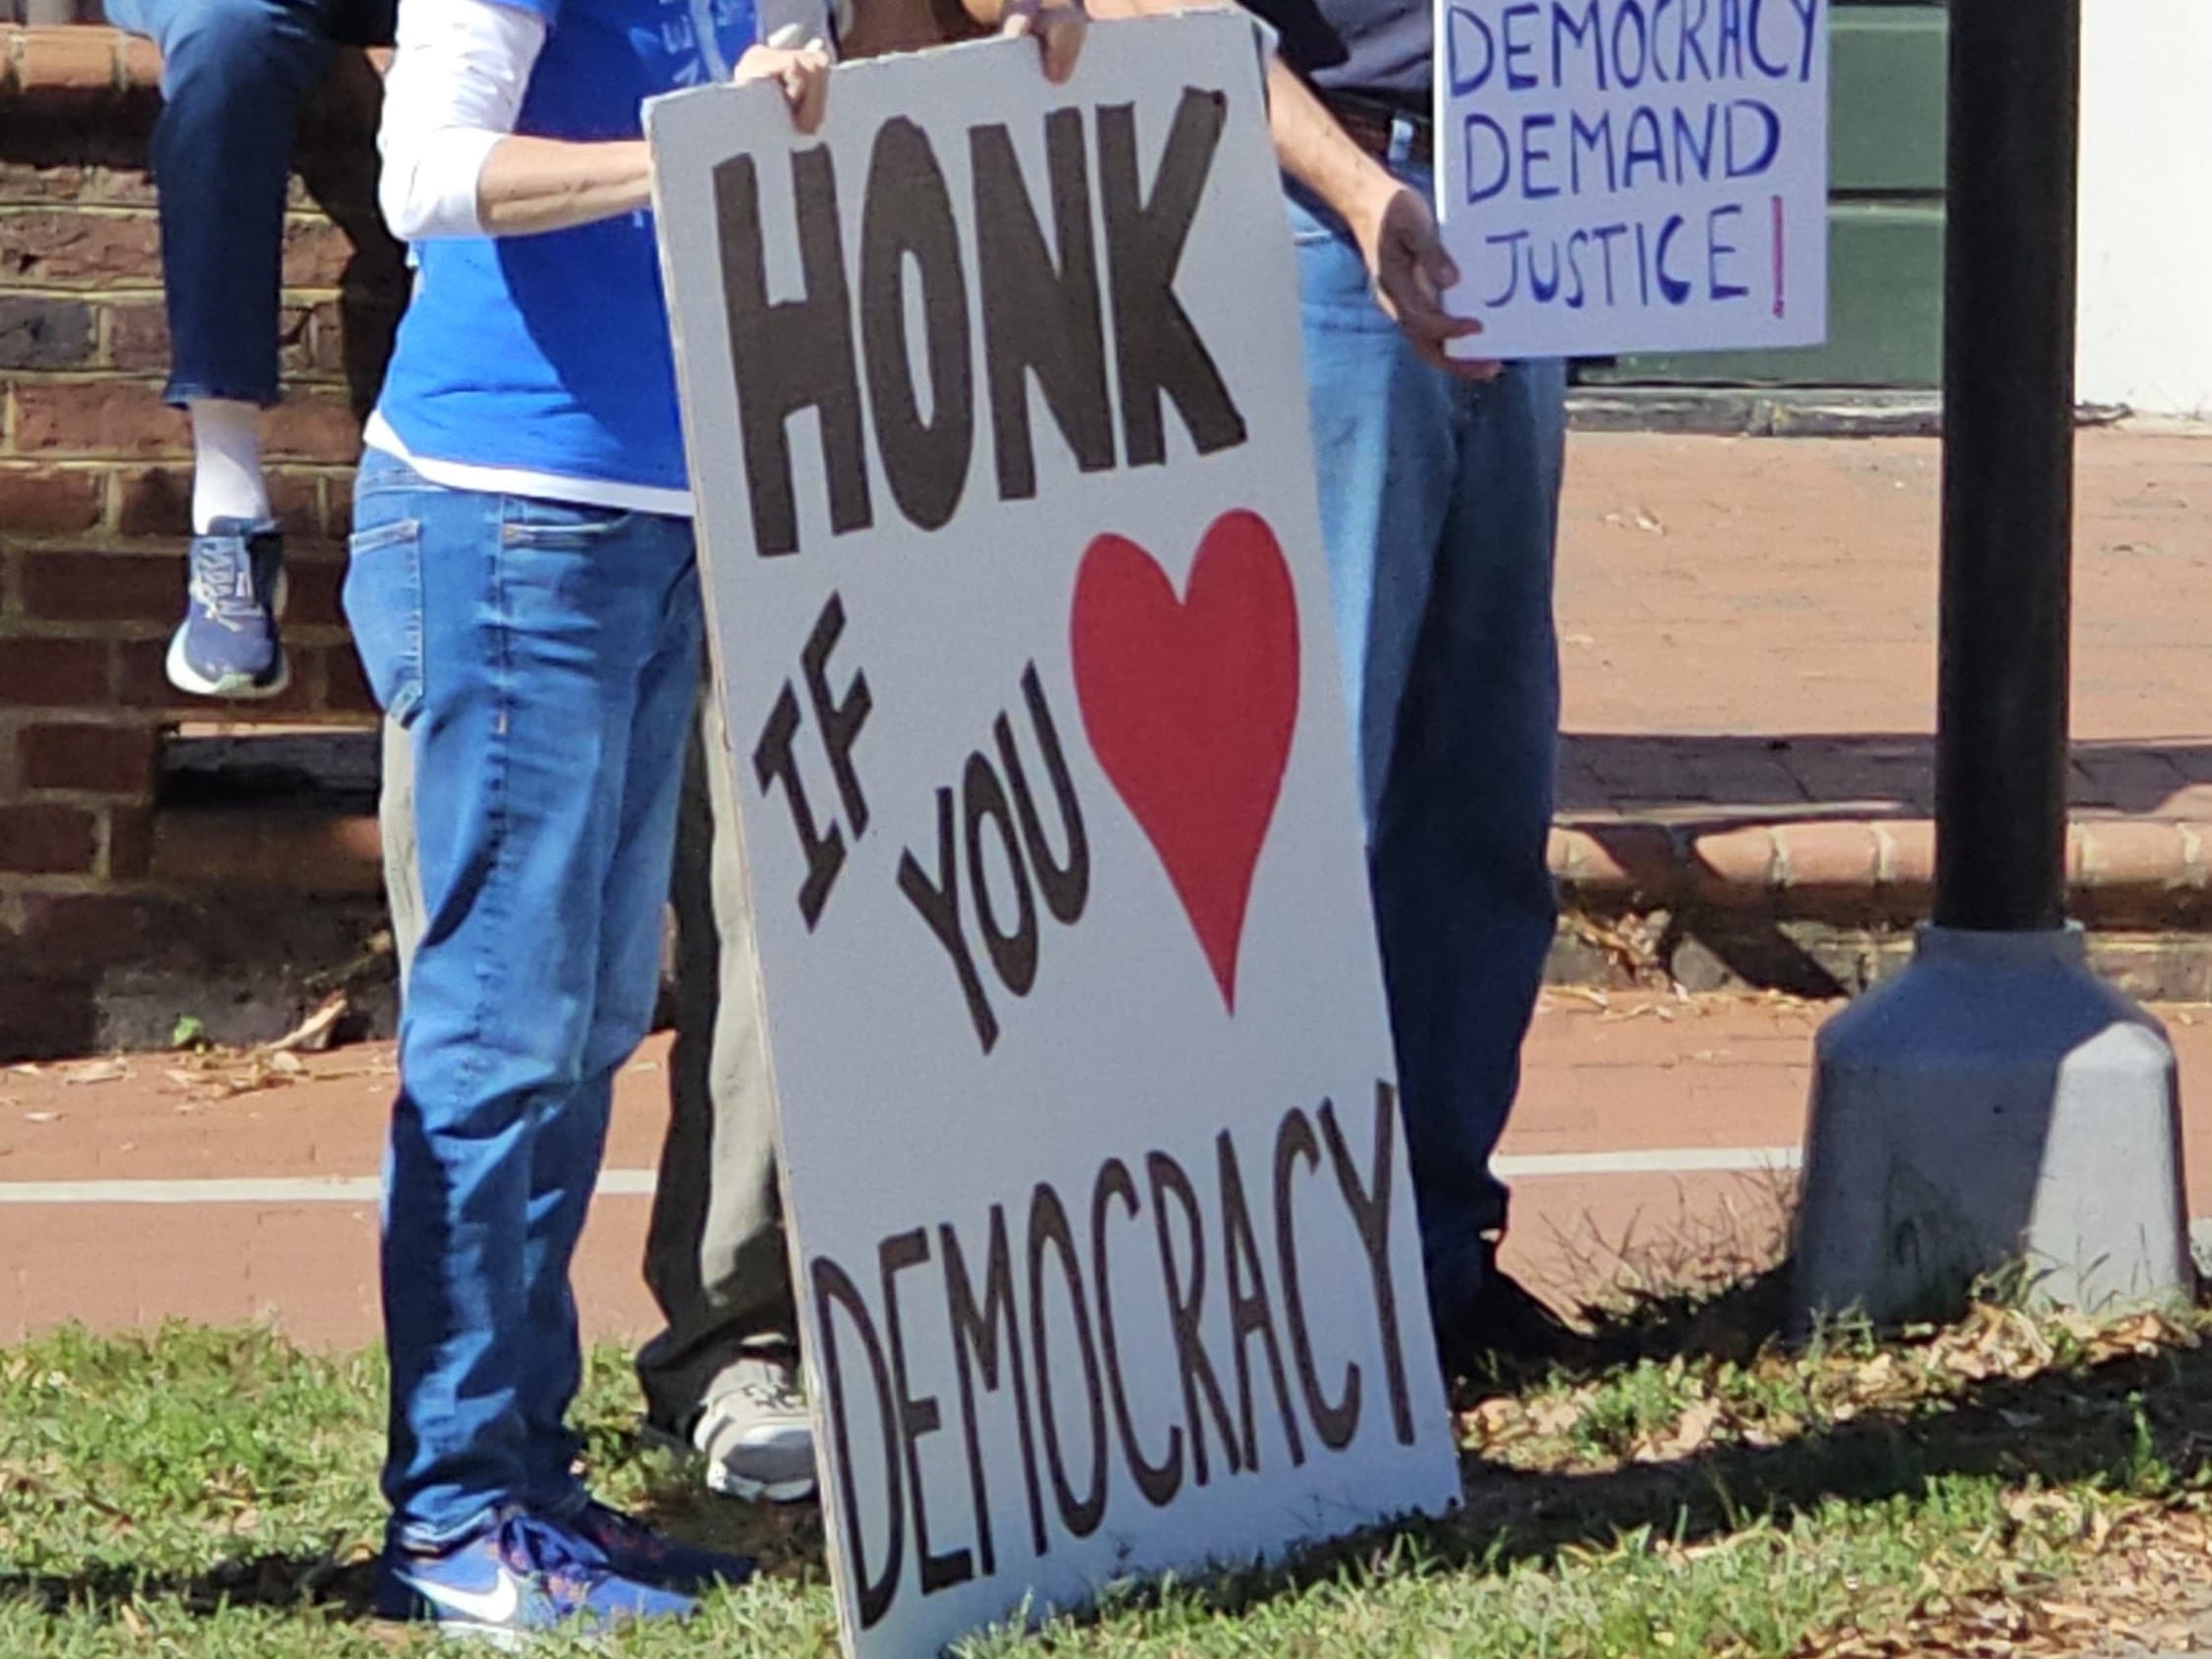 HONK
IF
YOU
DEMOCRACY
DEMOCRACY
DEMAND
JUSTICE!